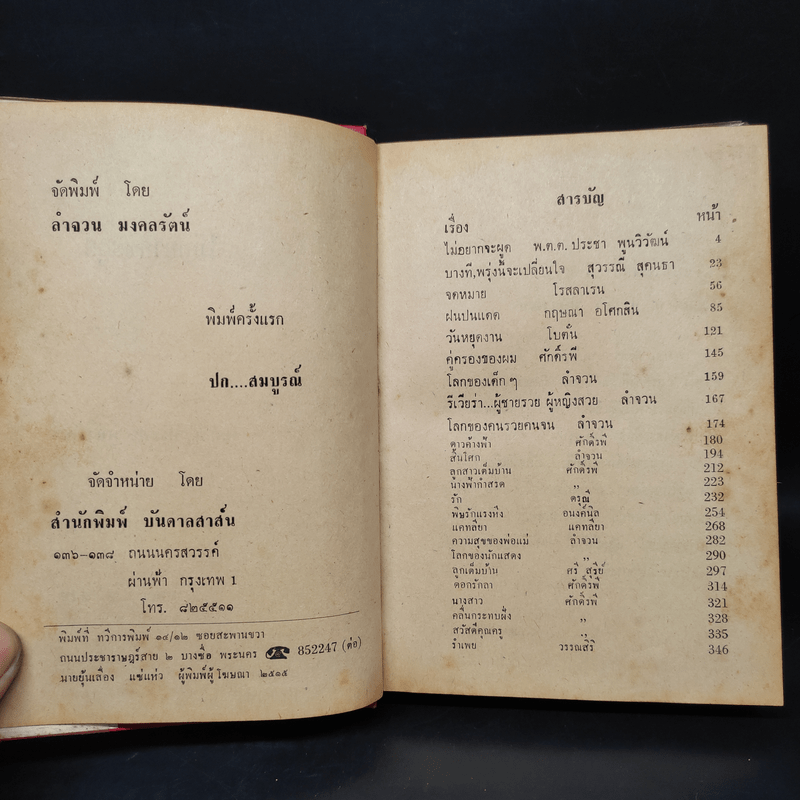 จัดพิมพ์ โดย
ลำจวน มงคลรัตน์
พิมพ์ครั้งแรก
ปก....สมบูรณ์
จัดจำหน่าย โดย
สำนักพิมพ์ บันดาลสาส์น
๑๓๖-๑๓๘ ถนนนครสวรรค์
ผ่านฟ้า กรุงเทพ 1
โทร. ๘๒๕๕๑๑
พิมพ์ที่ ทวีการพิมพ์ ๑๔/๑๒ ซอยสะพานขวา
ถนนประชาราษฎร์สาย ๒ บางซื่อ พระนคร ☎ 852247 (ต่อ)
นายยุ้นเลื่อง แซ่แห่ว ผู้พิมพ์ผู้โฆษณา ๒๕๑๕
สารบัญ
เรื่อง หน้า
ไม่อยากจะผูด พ.ต.ต. ประชา พูนวิวัฒน์ 4
บางที,พรุ่งนี้จะเปลี่ยนใจ สุวรรณี สุคนธา 23
จดหมาย โรสลาเรน 56
ฝนปนแดด กฤษณา อโศกสิน 85
วันหยุดงาน โบตั๋น 121
คู่ครองของผม ศักดิ์รพี 145
โลกของเด็กๆ ลำจวน 159
รีเวียร่า...ผู้ชายรวย ผู้หญิงสวย ลำจวน 167
โลกของคนรวยคนจน ลำจวน 174
ดาวค้างฟ้า ศักดิ์รพี 180
สั้นโศก ลำจวน 194
ลูกสาวเต็มบ้าน ศักดิ์รพี 212
นางฟ้ากำสรด ,, 223
รัก ดรุณี 232
พิษรักแรงหึง อนงค์นิล 254
แคทลียา แคทลียา 268
ความสุขของพ่อแม่ ลำจวน 282
โลกของนักแสดง ,, 290
ลูกเต็มบ้าน ศรี สุรีย์ 297
ดอกรักลา ศักดิ์รพี 314
นางสาว ศักดิ์รพี 321
คลื่นกระทบฝั่ง ,, 328
สวัสดีคุณครู ,, 335
รำเพย วรรณสิริ 346